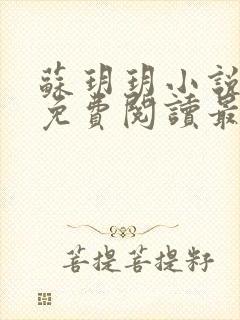 蘇玥玥小說
免費閱讀最
菩提菩提籽